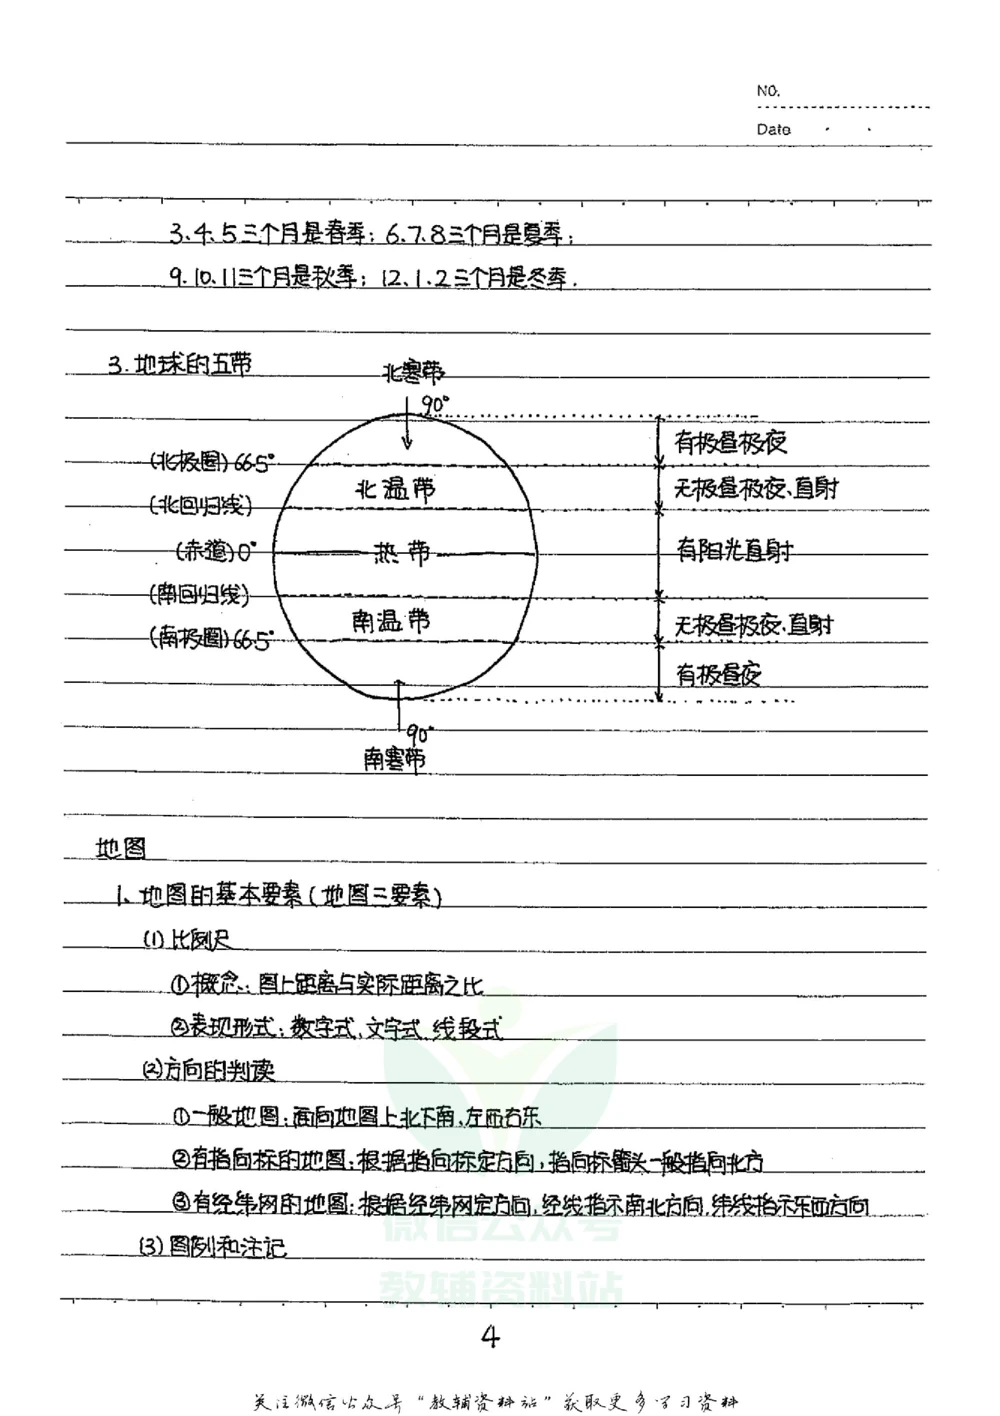 NO.
Date
3.4.5三个月是春季；6.7.8三个月是夏季；
9.10.11三个月是秋季；12.1.2三个月是冬季.
3.地球的五带
北寒带
90°
有极昼极夜
(北极圈)66.5°
北温带
无极昼极夜、直射
(北回归线)
(赤道)0°
热带
有阳光直射
(南回归线)
南温带
无极昼极夜、直射
(南极圈)66.5°
有极昼夜
90°
南寒带
地图
1、地图的基本要素(地图三要素)
(1)比例尺
①概念：图上距离与实际距离之比
②表现形式：数字式、文字式、线段式
(2)方向的判读
①一般地图：面向地图上北下南、左西右东
②有指向标的地图：根据指向标定方向，指向标箭头一般指向北方
③有经纬网的地图：根据经纬网定方向，经线指示南北方向，纬线指示东西方向
(3)图例和注记
微信公众号
教辅资料站
4
关注微信公众号“教辅资料站”获取更多学习资料